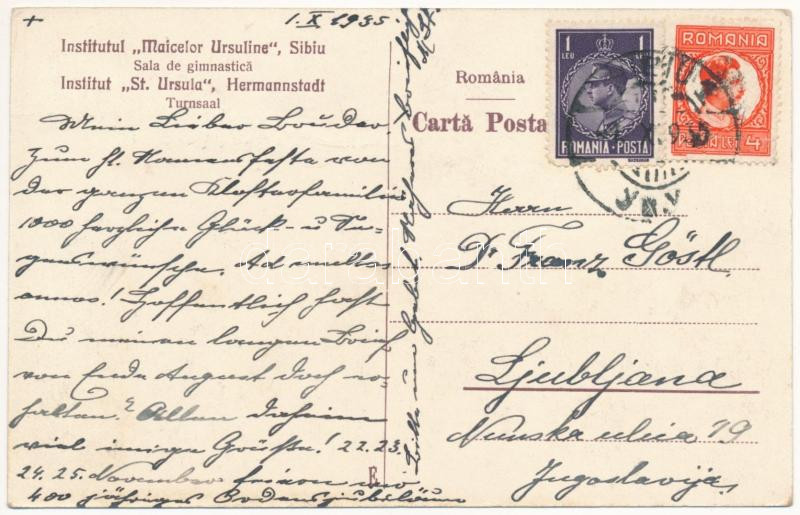 + 1.X.1935
Institutul „Maicelor Ursuline“, Sibiu
Sala de gimnastică
Institut „St. Ursula“, Hermannstadt
Turnsaal
Mein Lieber Bruder,
Zum hl. Namensfeste von
der ganzen Klosterfamilie
1000 herzliche Glück- u Se-
genswünsche. Ad multos
annos! Hoffentlich hast
Du meinen langen Brief
von Ende August doch er-
halten? Allen daheim
viel innige Grüße! 22. 23.
24. 25. November feiern wir
400 jähriges Ordensjubiläum
Bitte um Gebet.
România
Cartă Posta
E
1 LEU 1 LEU
ROMANIA-POSTA
ROMANIA
4
Herrn
Dr Franz Göstl
Ljubljana
Nunska ulica 19
Jugoslavija
darabanth